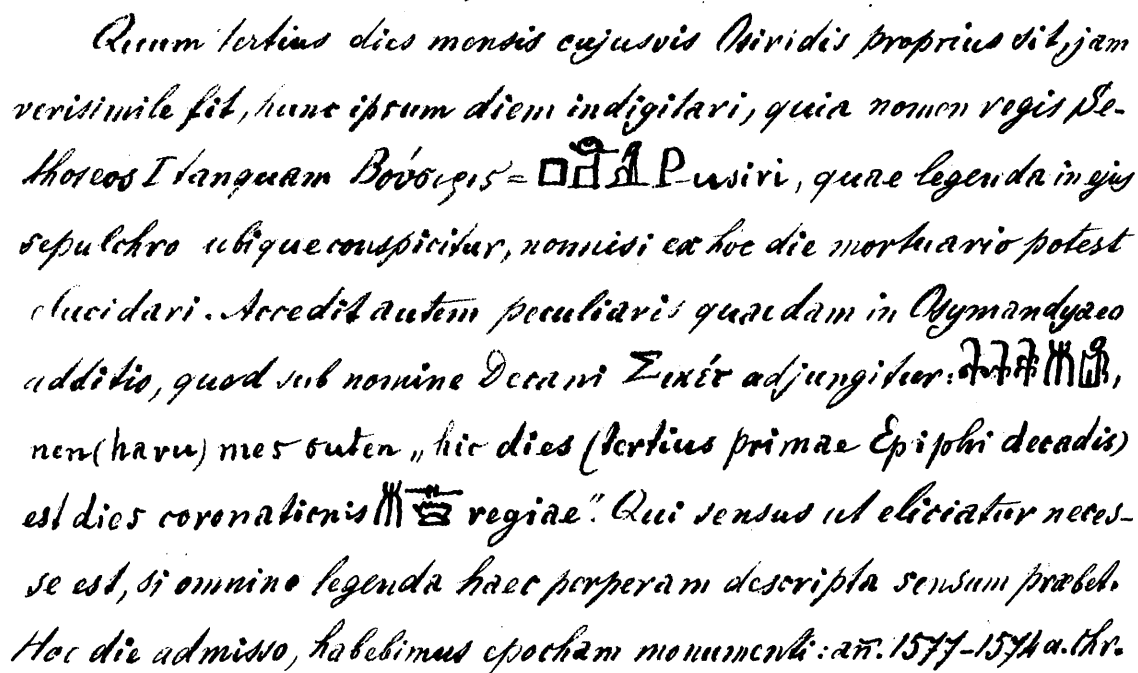 Quum tertius dies mensis cujusvis Osiridis proprius sit, jam
verisimile fit, hunc ipsum diem indigitari, quia nomen regis Se-
thoseos I tanquam Βούσιρις = Pusiri, quae legenda in ejus
sepulchro ubique conspicitur, nonnisi ex hoc die mortuario potest
elucidari. Accedit autem peculiaris quaedam in Osymandyaeo
additio, quod sub nomine Decani Σικέτ adjungitur:
nen (haru) mes suten „hic dies (tertius primae Epiphi decadis)
est dies coronationis regiae". Qui sensus ut eliciatur neces-
se est, si omnino legenda haec perperam descripta sensum præbet.
Hoc die admisso, habebimus epocham monumenti: añ. 1577-1574 a. Chr.